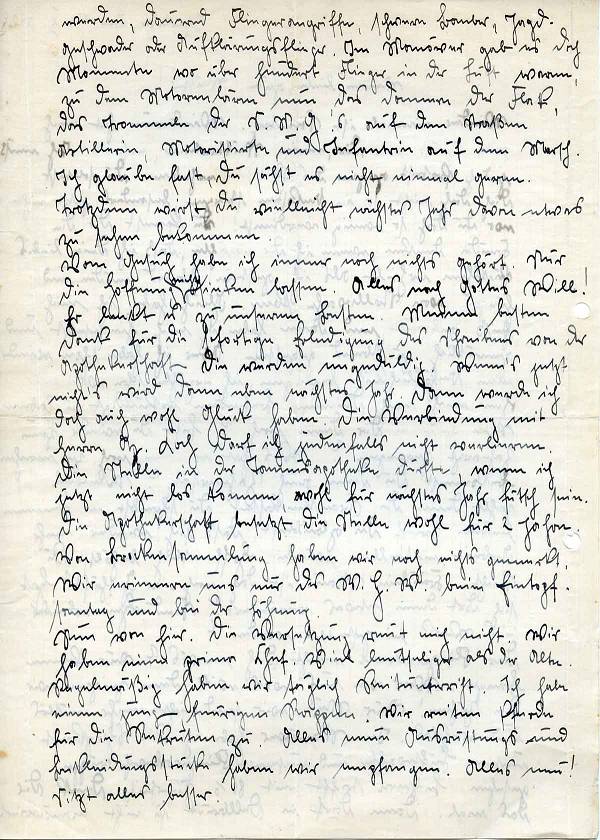 werden, dauernd Fliegerangriffe, schwere Bomber, Jagd-
geschwader oder Aufklärungsflieger. Im Manöver gab es doch
Momente wo über hundert Flieger in der Luft waren,
zu dem Motorenlärm nun das Donnern der Flak,
das Trommeln der S. M. G.'s auf den Straßen
Artillerie, Motorisierte und Infanterie auf dem Marsch.
Ich glaube fast, Du sähst es nicht einmal gerne.
Trotzdem wirst Du vielleicht nächstes Jahr davon etwas
zu sehen bekommen.
Vom Gesuch habe ich immer noch nichts gehört. Nur
die Hoffnung nicht sinken lassen. Alles nach Gottes Will!
Er lenkt es zu unserem Besten. Meinen besten
Dank für die sofortige Erledigung des Schreibens von der
Apothekerschaft. Die werden ungeduldig. Wenn's jetzt
nichts wird dann eben nächstes Jahr. Dann werde ich
doch auch wohl Glück haben. Die Verbindung mit
Herrn Loch darf ich jedenfalls nicht verlieren.
Die Stelle in der Apotheke dürfte, wenn ich
jetzt nicht los komme, wohl für nächstes Jahr futsch sein.
Die Apothekerschaft besetzt die Stelle wohl für 2 Jahre.
Von Brockensammlung haben wir noch nichts gemerkt.
Wir erinnern uns nur des W. H. W. beim Eintopf-
sonntag und bei der Löhnung.
Nun von hier. Die Versetzung reut mich nicht. Wir
haben einen prima Chef. Viel leutseliger als der Alte.
Regelmäßig haben wir täglich Reitunterricht. Ich habe
einen jungen feurigen Rappen. Wir reiten Pferde
für die Rekruten zu. Alles neue Ausrüstungs und
Bekleidungsstücke haben wir empfangen. Alles neu!
Sitzt alles besser.